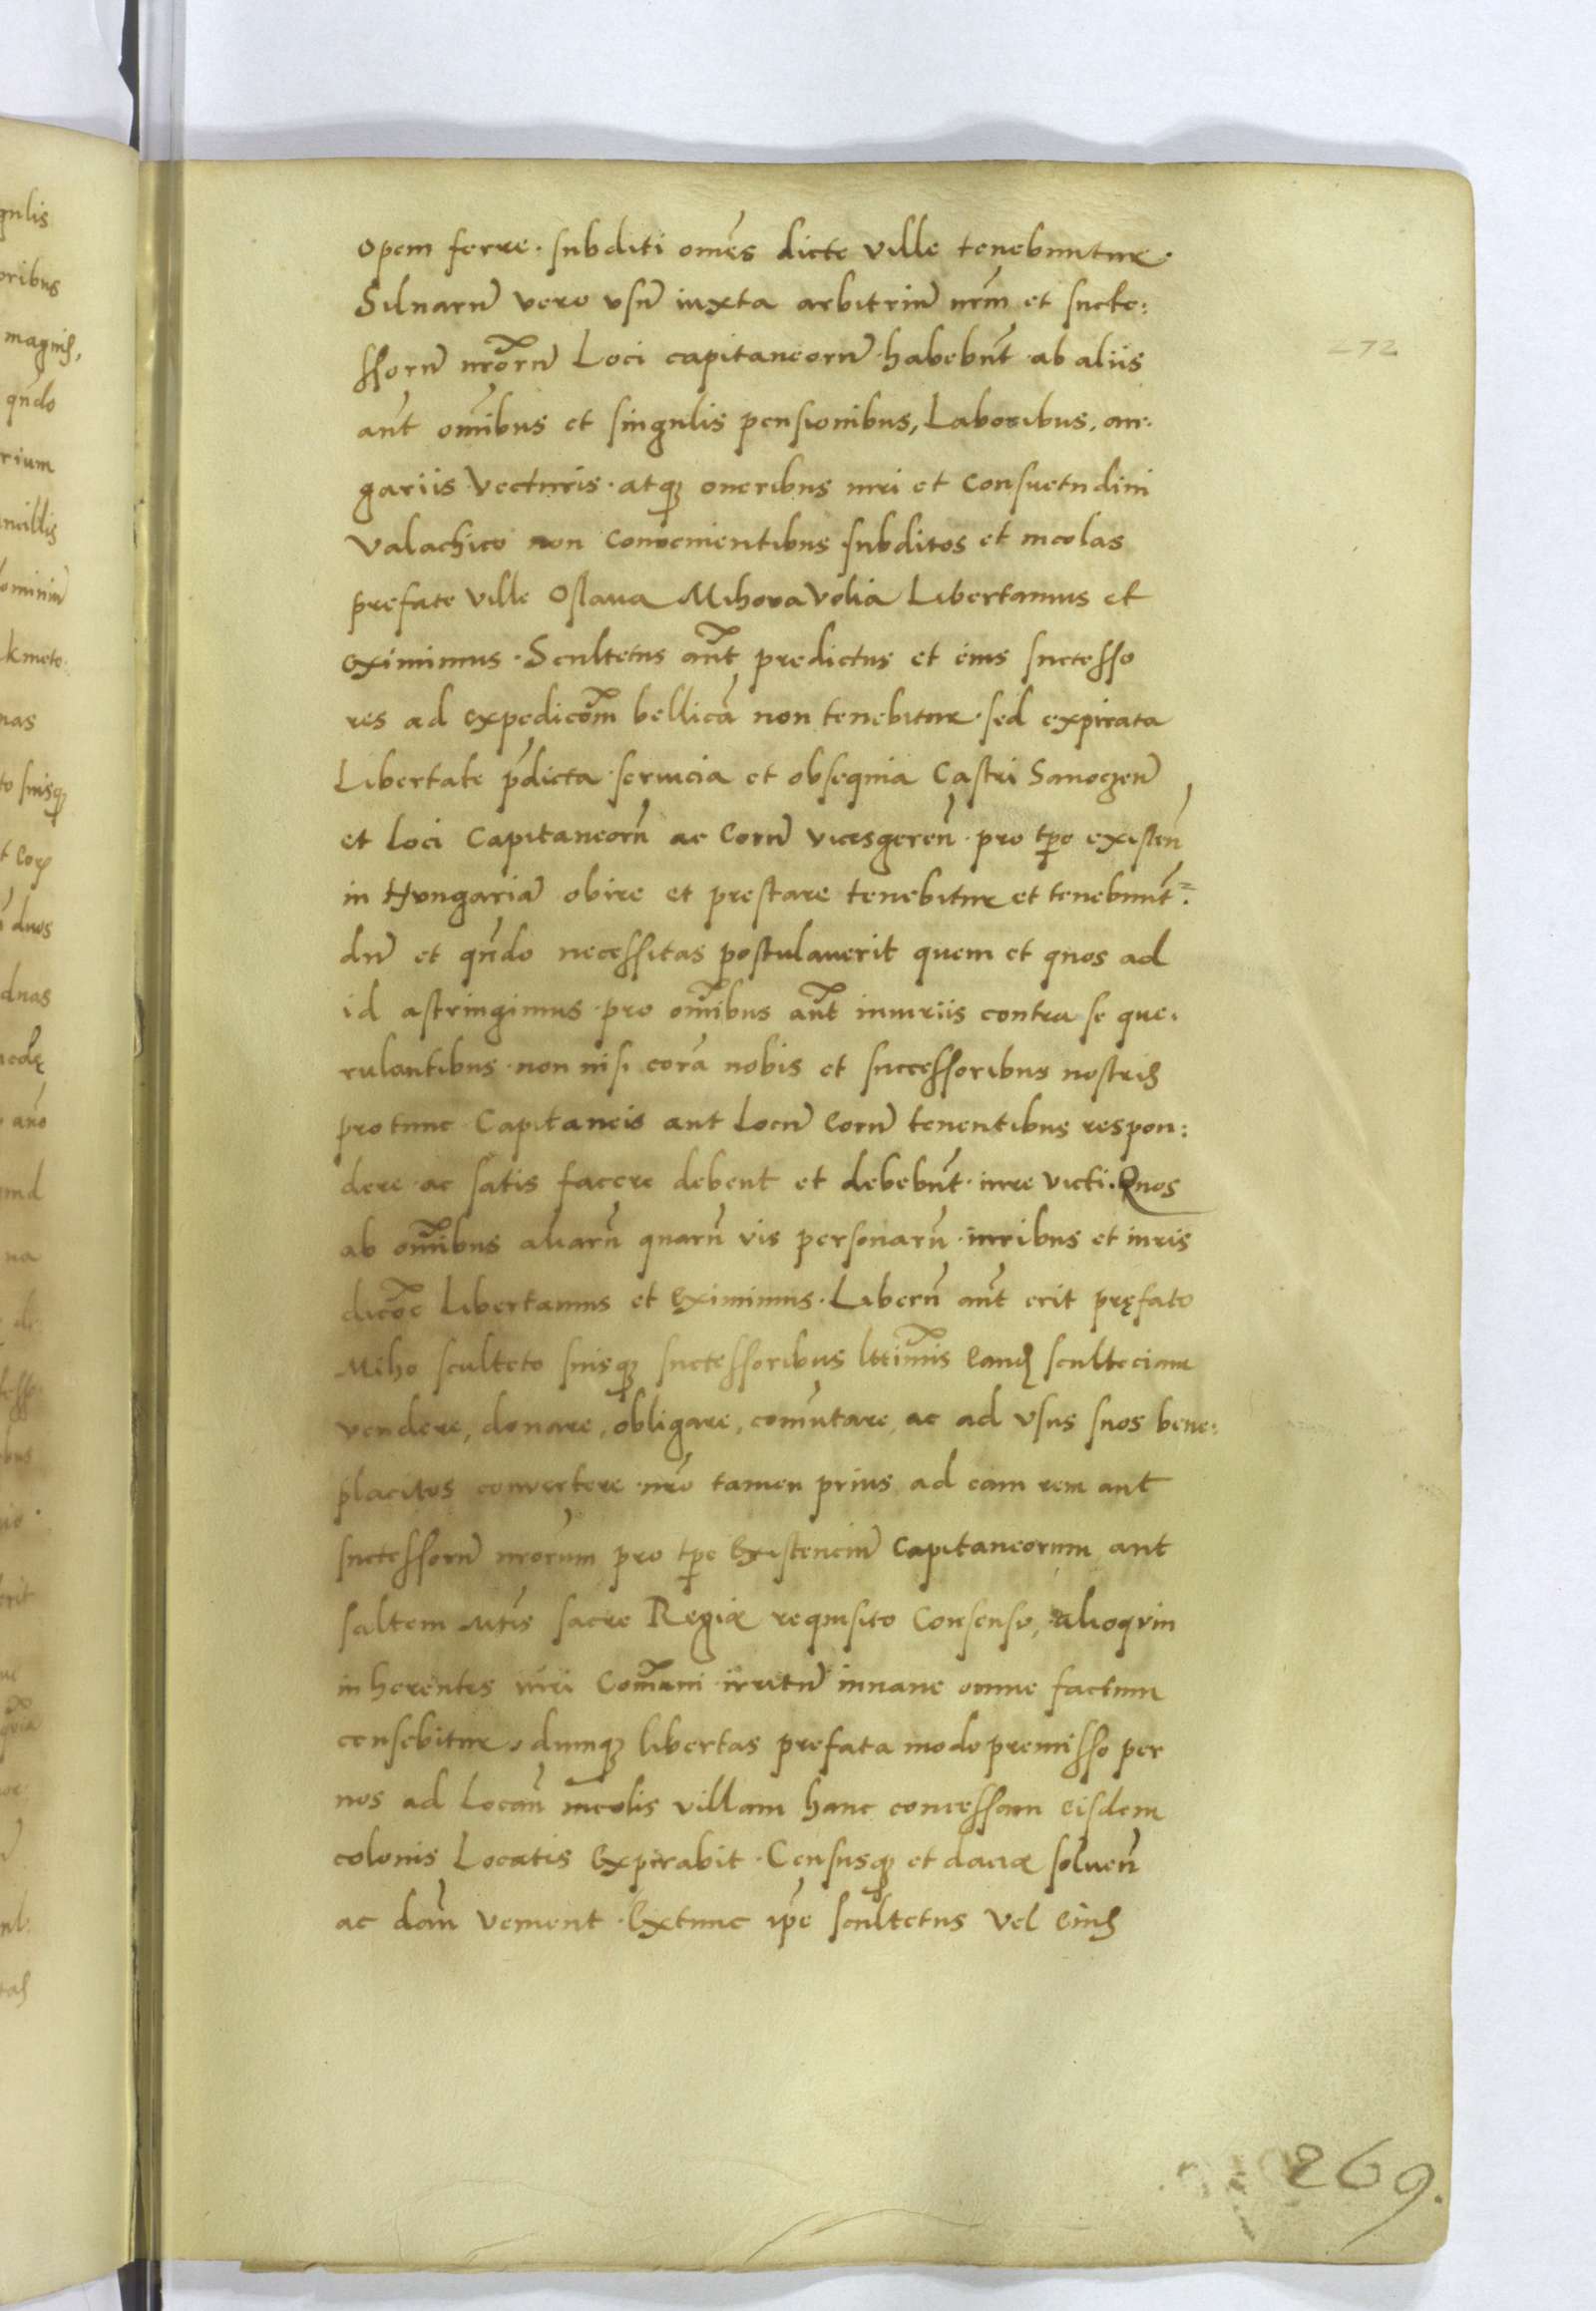 opem ferre · subditi omēs dicte ville tenebuntur ·
Siluarū vero vsū iuxta arbitriū nrm̄ et succe:
ssorū nrōrū Loci capitaneorū · habebūt · ab aliis
aūt om̄ibus et singulis pensionibus, Laboribus, an:
gariis vecturis · atq̨ oneribus iuri et Consuetudini
Valachico non Conuenientibus subditos et incolas
prefate ville Oslaua Mihova Volia Libertamus et
eximimus · Scultetus aūt predictus et eius successo
res ad expedicōm bellicā non tenebitur · sed expirata
Libertate p̄dicta · seruicia et obsequia Castri Sanoczeñ
et loci Capitaneorū ac Eorū vicesgereñ · pro tp̄e existeñ
in Hvngariā obire et prestare tenebitur et tenebunt̄:
dū et qn̄do necessitas postulauerit quem et quos ad
id astringimus · pro om̄ibus aūt iniuriis contra se que:
rulantibus · non nisi corā nobis et successoribus nostris
protunc Capitaneis aut Locū Eorū tenentibus respon:
dere · ac satis facere debent et debebūt · iure victi · Quos
ab om̄ibus aliarū quarū vis personarū · iuribus et iuris
dicōe Libertamus et Eximimus · Liberū aūt erit pręfato
Miho sculteto suisq̨ successoribus lttimis Eand̄ sculteciam
vendere, donare, obligare, comūtare, ac ad vsus suos bene:
placitos convertere · nrō tamen prius ad eam rem aut
successorū nrōrum pro tp̄e Existenciū Capitaneorum aut
saltem Mtis̄ sacre Regiæ requisito Consensu, alioqvin
in herentes iuri Com̄uni · irritū innane omne factum
censebitur, dumq̨ libertas prefata modo premisso per
nos ad Locañ incolis villam hanc concessam eisdem
colonis Locatis Expirabit · Censusq̨ et daciæ solueñ
ac dañ venient · Extunc ip̄e scultetus vel Eius
272
269.